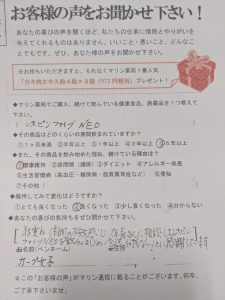 お客様の声をお聞かせ下さい！
あなたの喜びの声を聞くほど、私たちの仕事に情熱とやりがいを
与えてくれるものはありません。いいこと・悪いこと、どんなこと
でもです。ぜひ、あなた様の声をお聞かせ下さい。
※お持ちいただきますと、もれなくマリン薬局１番人気
プレゼント！
◆マリン薬局でご購入、続けて飲んでいる健康食品、医薬品を１つ教えて
下さい。
NEO
◆その商品はどのくらいの期間飲まれていますか？
①１ヶ月未満 ②半年 ③１年以上 ④３年以上 ⑤５年以上
◆また、その商品を飲み始めた理由、続けている理由は？
①健康維持 ②疲労回復（睡眠） ③ダイエット ④アレルギー疾患
⑤生活習慣病（高血圧・糖尿病・脂質異常症など） ⑥便秘
⑦その他（ ）
◆服用してみて変化はどうですか？
①とても良くなった ②良くなった ③少し良くなった ④分からない
◆あなたの喜びの気持ちをぜひ聞かせて下さい。
NEO
お名前（ペンネーム）
☆この「お客様の声」がマリン通信に載ることがございます。何卒、
ご了承下さいませ。